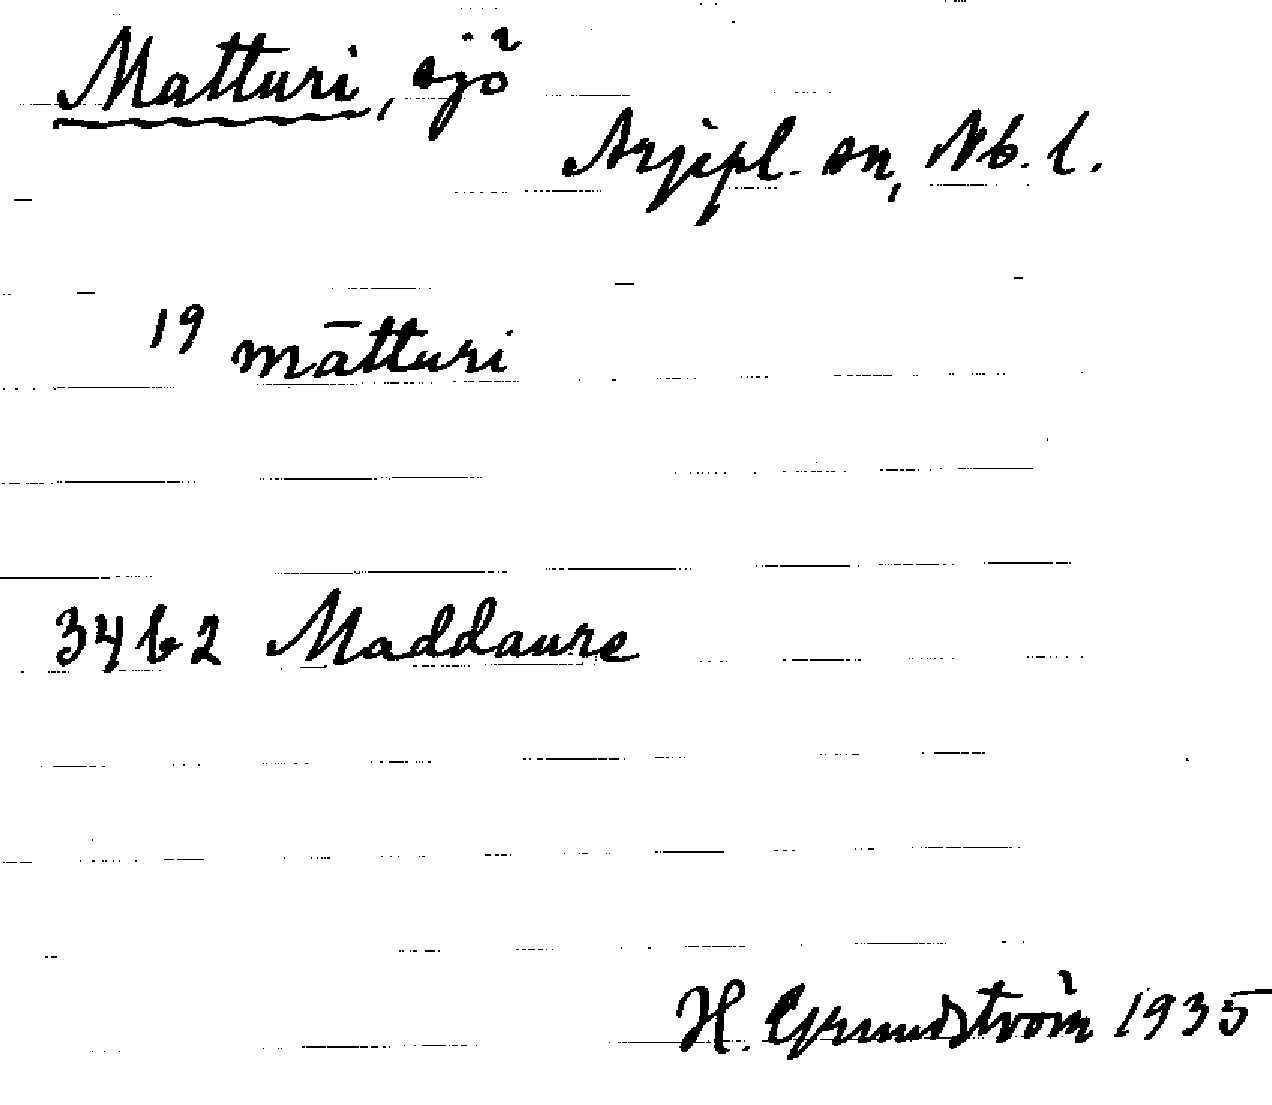 Matturi, sjö
Arjepl. sn, Nb. l.
19 mātturi
3462 Maddaure
H. Grundström 1935